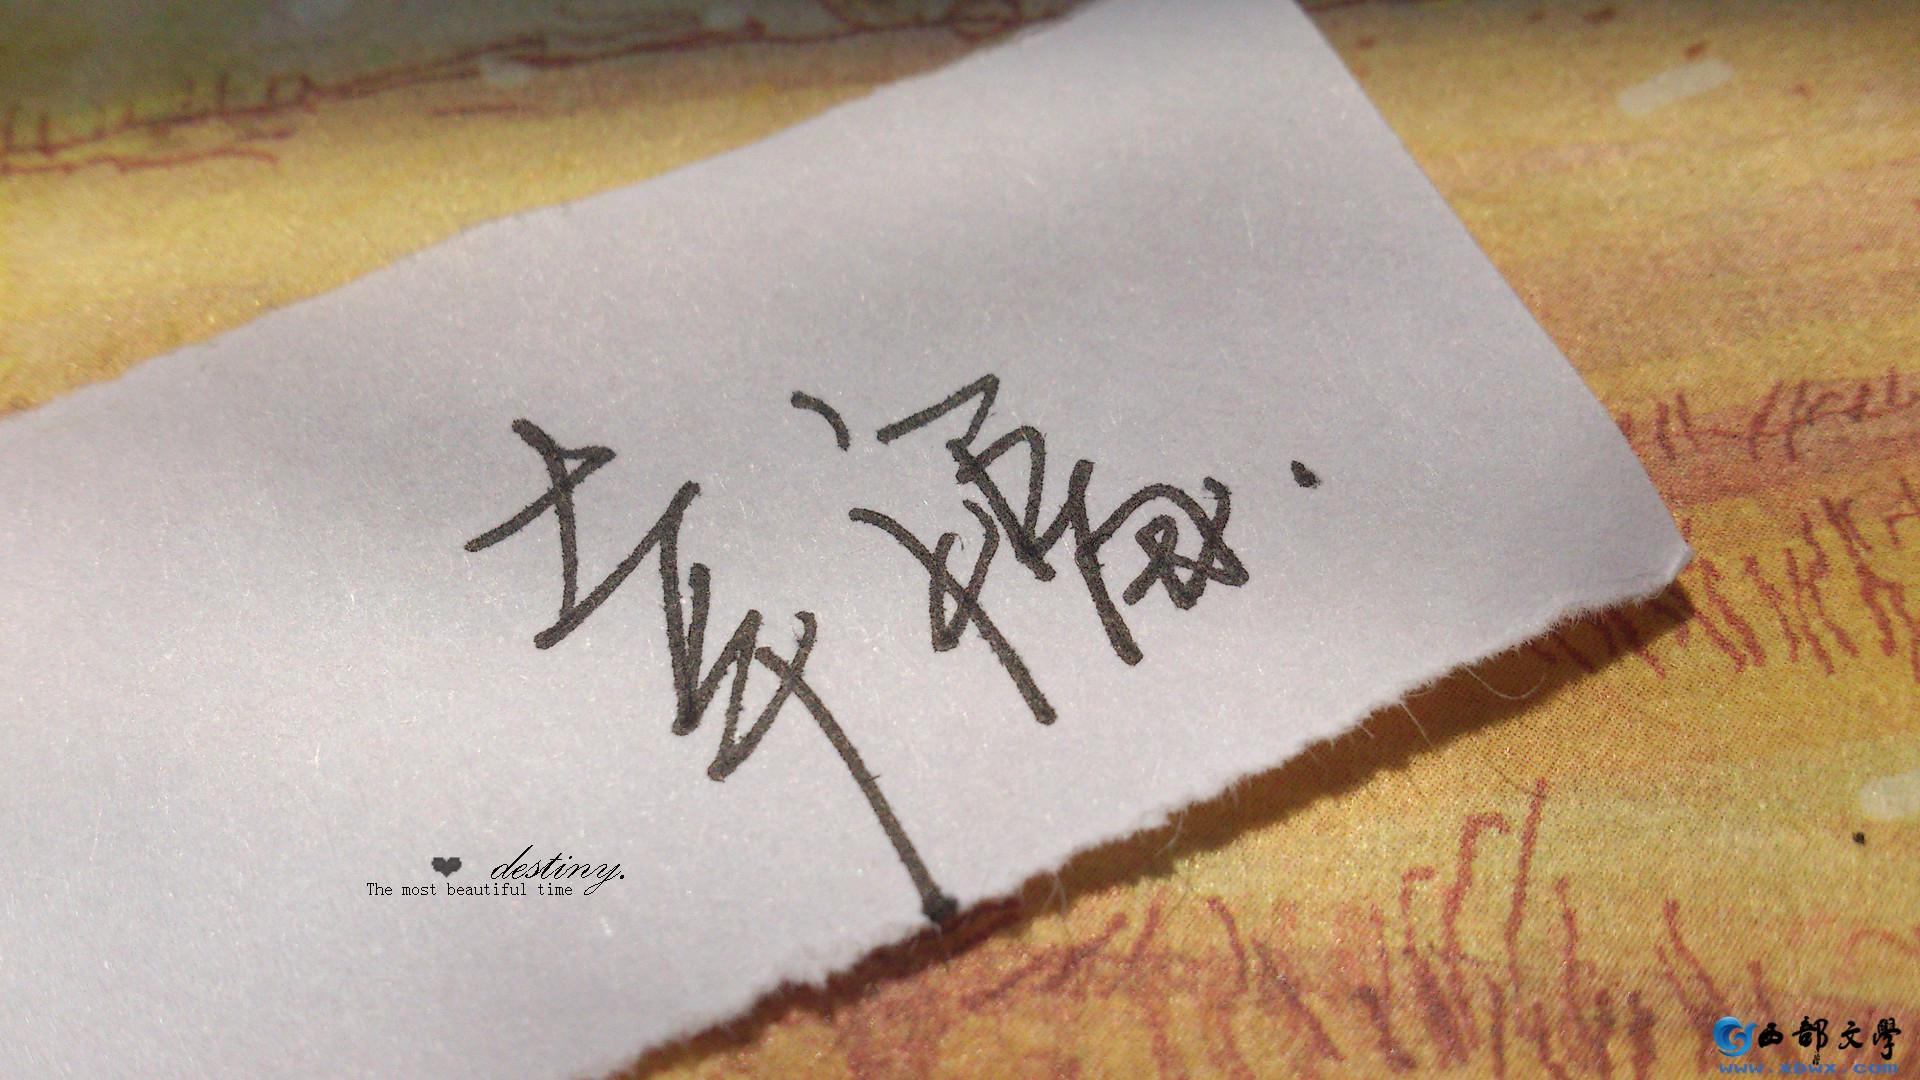 幸福.
destiny.
The most beautiful time
西部文學
www.xbwx.com